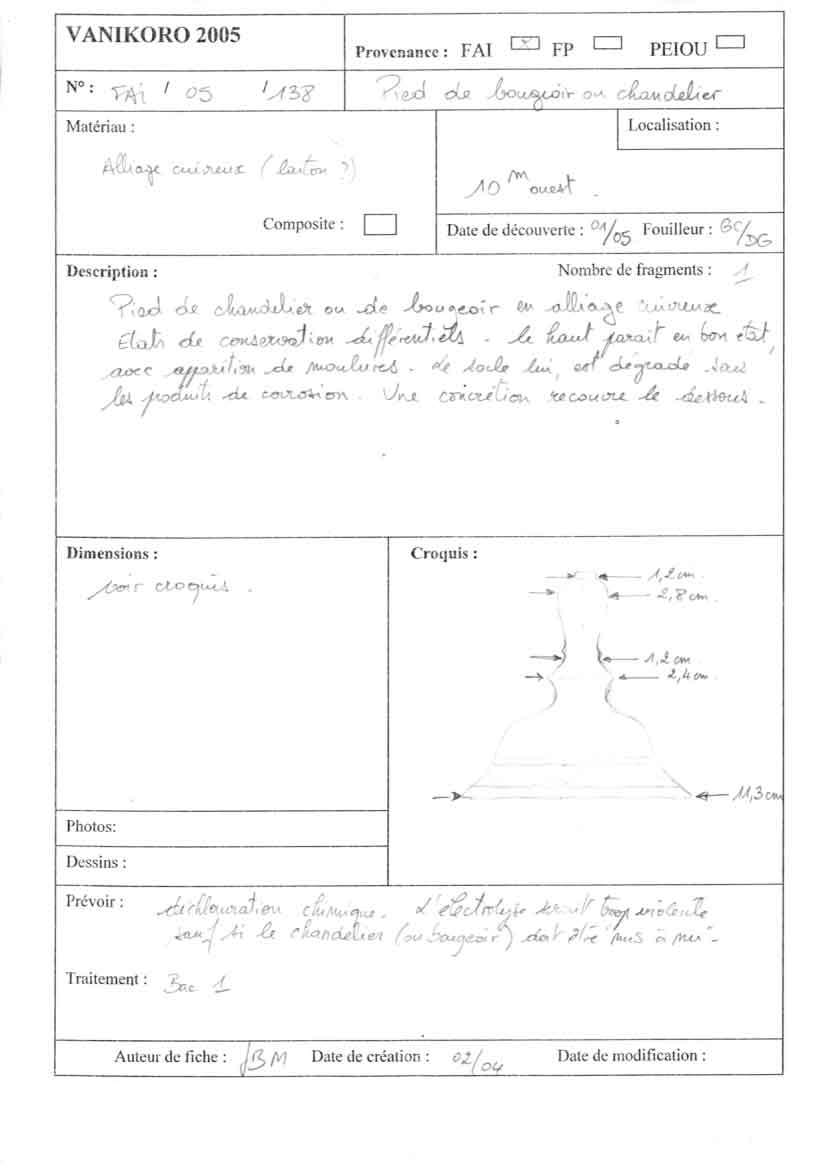 VANIKORO 2005
Provenance : FAI ☒ FP ☐ PEIOU ☐
N° : FAI / 05 / 138
Pied de bougeoir ou chandelier
Matériau :
Alliage cuivreux (laiton ?)
Composite : ☐
Localisation :
10 m ouest .
Date de découverte : 01/05 Fouilleur : BC/DG
Description :
Nombre de fragments : 1
Pied de chandelier ou de bougeoir en alliage cuivreux
Etats de conservation différentiels - le haut parait en bon état,
avec apparition de moulures - Le socle lui, est dégradé sous
les produits de corrosion. Une concrétion recouvre le dessous -
Dimensions :
voir croquis .
Croquis :
1,2 cm .
2,8 cm .
1,2 cm .
2,4 cm .
11,3 cm
Photos:
Dessins :
Prévoir : déchloruration chimique. L'électrolyse serait trop violente
sauf si le chandelier (ou bougeoir) doit être "mis à nu"-
Traitement : Bac 1
Auteur de fiche : JBM Date de création : 02/04 Date de modification :